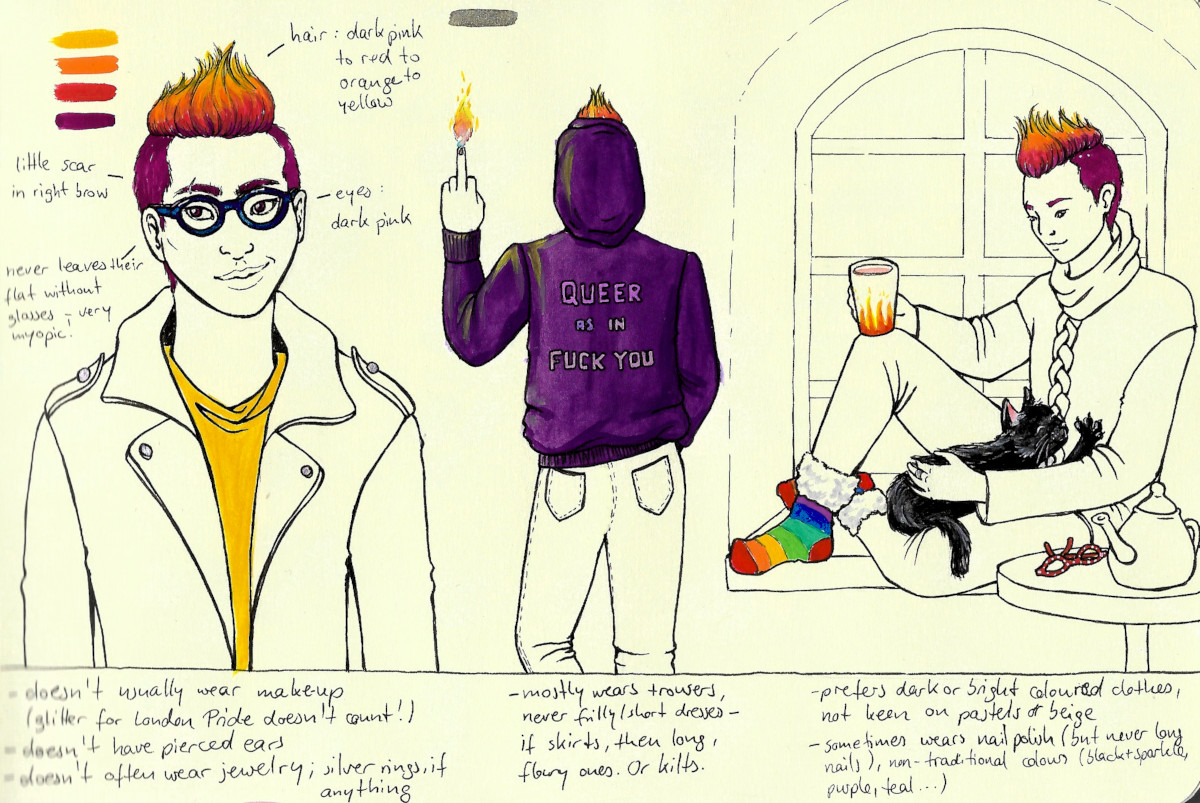 hair: dark pink
to red to
orange to
yellow
little scar
in right brow
eyes:
dark pink
never leaves their
flat without
glasses – very
myopic!
QUEER
AS IN
FUCK YOU
- doesn't usually wear make-up
(glitter for London Pride doesn't count!)
- doesn't have pierced ears
- doesn't often wear jewelry; silver rings, if
anything
- mostly wears trousers,
never frilly/short dresses –
if skirts, then long,
flowy ones. Or kilts.
- prefers dark or bright coloured clothes,
not keen on pastels or beige
- sometimes wears nail polish (but never long
nails), non-traditional colours (black+sparkle,
purple, teal...)